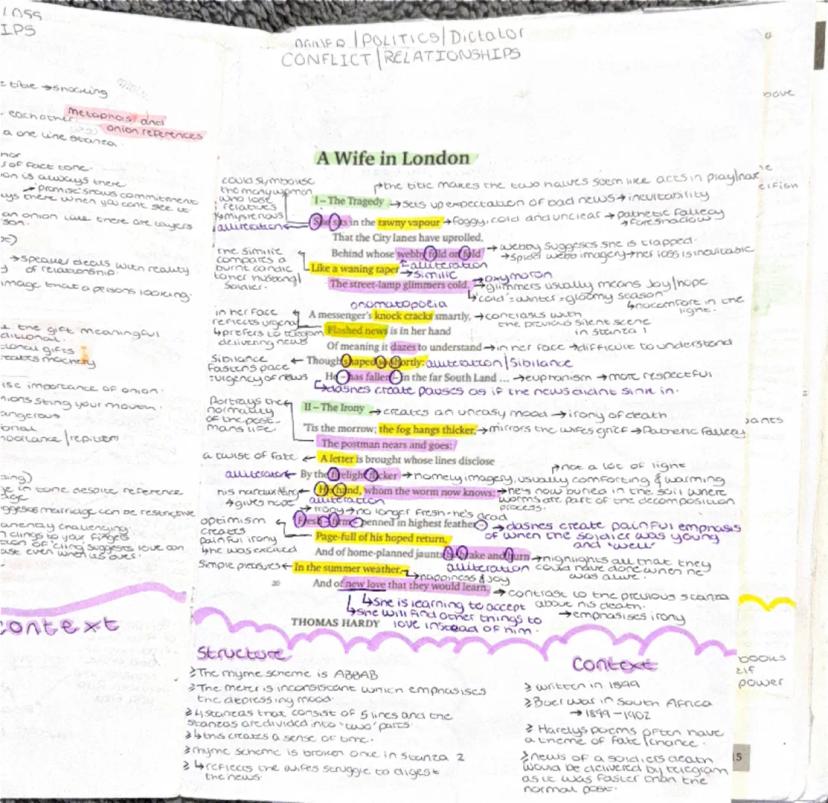 LOSS
IPS
POWER/POLITICS/Dictator
CONFLICT/RELATIONSHIPS
title → shocking
each other metaphors and
onion references
a one line stanza.
of fact tone.
ion is always there
→ promise shows commitment
ways there when you can't see it
an onion like there are layers
→ speaker deals with reality
of relationship
image that a person's looking
the gift meaningful
ditional.
ional gifts
creates mockery
ise importance of onion.
nions sting your mouth
angerous
onal
e in tone despite reference
ggests marriage can be restrictive
anently challenging
n clings to your fingers
tion of 'cling' suggests love can
context
A Wife in London
could symbolise
the many women
who lose
relatives
↳ mysterious
alliteration
↱ the title makes the two halves seem like acts in play/nar
I – The Tragedy → sets up expectation of bad news → inevitability
She sits in the tawny vapour → foggy, cold and unclear → pathetic fallacy
↳ foreshadow
That the City lanes have uprolled,
Behind whose webby fold on fold → webby suggests she is trapped.
→ spider web imagery → her loss is inevitable
alliteration
the similie
compares a
burnt candle
to her husband/
soldier.
Like a waning taper → similie
The street-lamp glimmers cold. → oxymoron
→ glimmers usually means joy/hope
↳ 'cold': winter → gloomy season
↳ no comfort in the
light.
onomatopoeia
A messenger's knock cracks smartly, → contrasts with
the previous silent scene
in stanza 1
in her face
reflects urgency
↳ prefers to telegram
delivering news
Flashed news is in her hand
Of meaning it dazes to understand → in her face → difficult to understand
Though shaped so shortly: alliteration/Sibilance
Sibilance
fastens pace
↳ urgency of news
He – has fallen – in the far South Land ... → euphemism → more respectful
↳ dashes create pauses as if the news didnt sink in.
Portrays the
normality
of the post-
mans life.
II – The Irony → creates an uneasy mood → irony of death
'Tis the morrow; the fog hangs thicker, → mirrors the wifes grief → Pathetic Fallacy
The postman nears and goes:
a twist of fate ← A letter is brought whose lines disclose
↱ not a lot of light
alliteration ← By the firelight flicker → homely imagery, usually comforting & warming
His hand, whom the worm now knows: → he's now buried in the soil where
worms are part of the decomposition
process.
alliteration
→ irony → no longer fresh - he's dead
Fresh – firm – penned in highest feather – → dashes create painful emphasis
of when the soldier was young
and 'well'
optimism
creates
painful irony
↳ he was excited
Page-full of his hoped return,
And of home-planned jaunts by brake and burn → highlights all that they
could have done when he
was alive.
alliteration
Simple pleasures ← In the summer weather,
↳ happiness & joy
20 And of new love that they would learn. → contrast to the previous stanza
about his death.
→ emphasises irony
↳ she is learning to accept
↳ she will find other things to
love instead of him.
THOMAS HARDY
Structure
> The rhyme scheme is ABBAB
> The meter is inconsistant which emphasises
the depressing mood
> 4 stanzas that consist of 5 lines and the
stanzas are divided into 'two' parts
> ↳ this creates a sense of time.
> rhyme scheme is broken once in stanza 2
> ↳ reflects the wifes struggle to digest
the news
Context
> written in 1899
> Boer war in South Africa
→ 1899-1902
> Hardys poems often have
a theme of fate/chance.
> news of a soldiers death
would be delivered by telegram
as it was faster than the
normal post.
ants
books
power
5